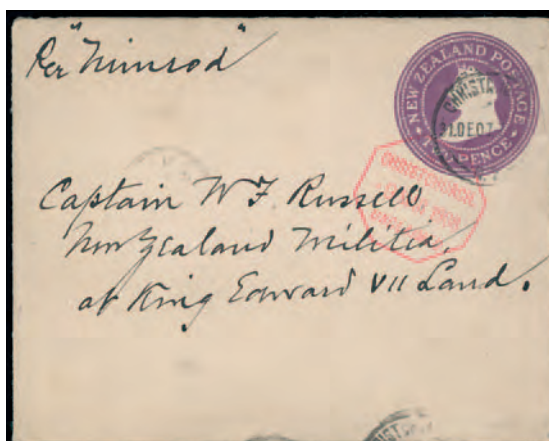 Per "Nimrod"
NEW ZEALAND POSTAGE
TWO PENCE
CHRISTCH
31.DE07
CHRISTCHURCH
Captain W. F. Russell
New Zealand Militia,
at King Edward VII Land.